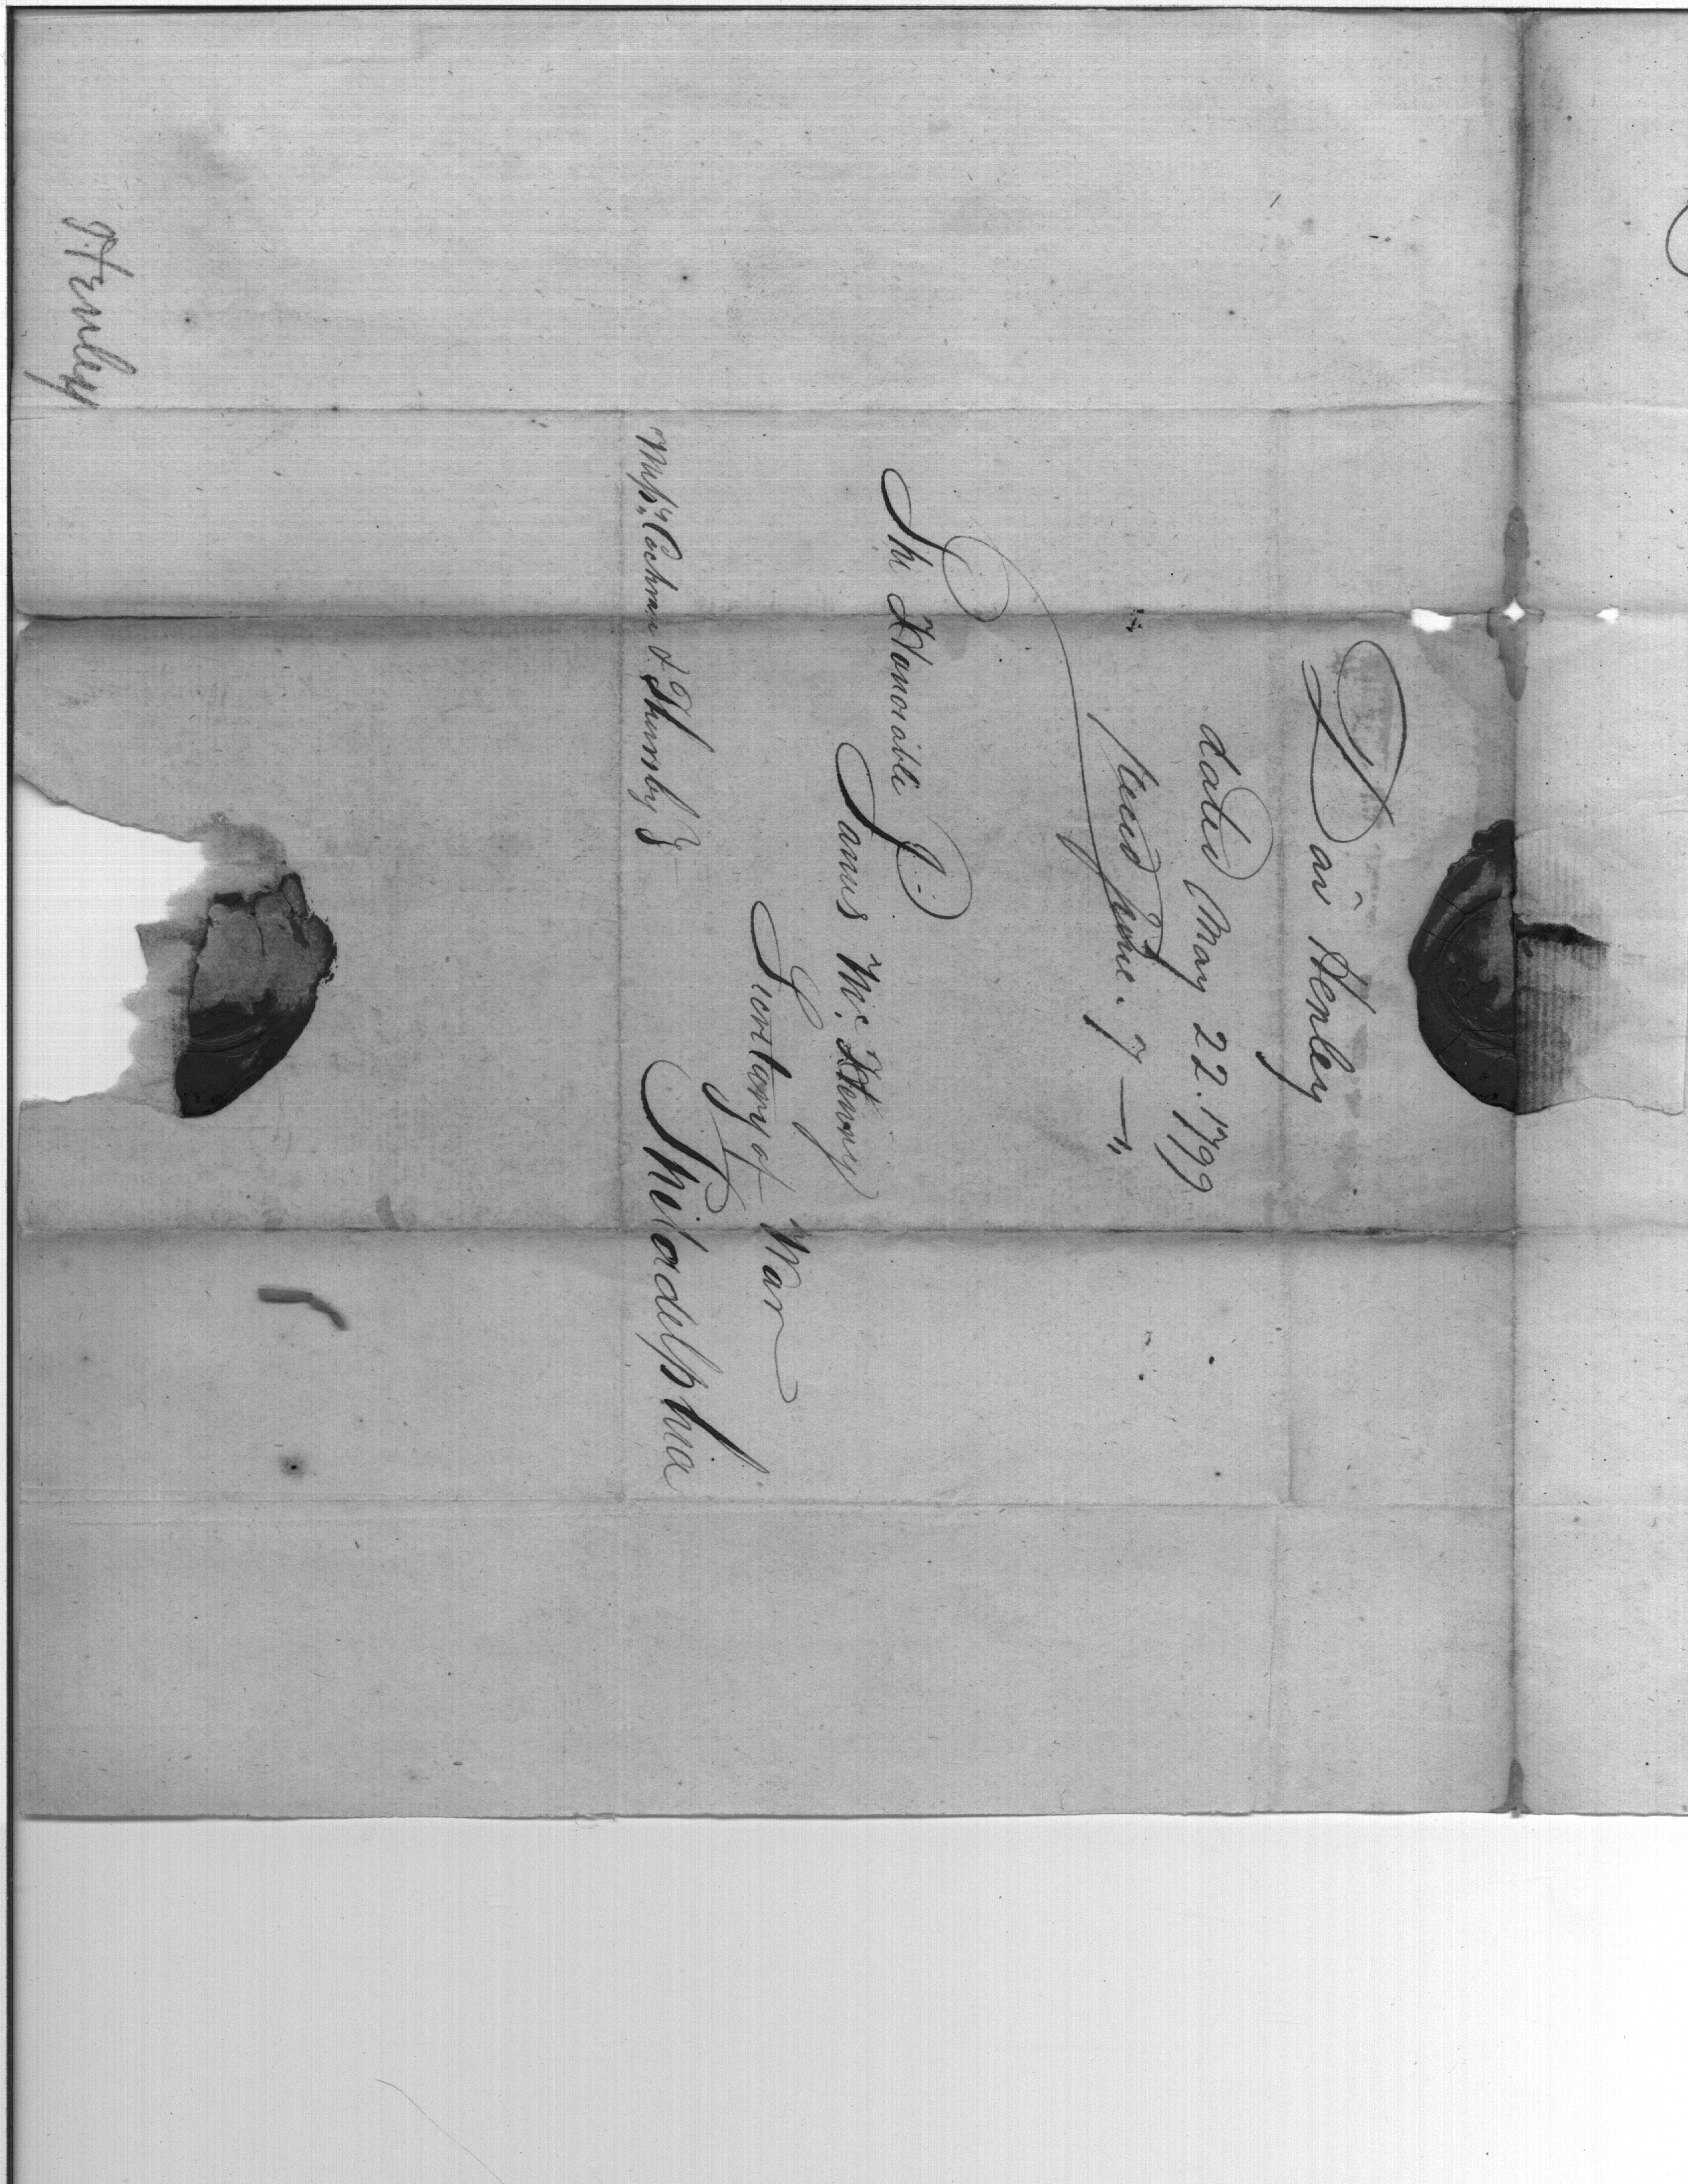 Dav̂ Henley
dated May 22. 1799
recd June. 7 —"
The Honorable
James Mc. Henry
Secretary of War
Philadelphia
Messrs. Cochran & Thursby }
Henley